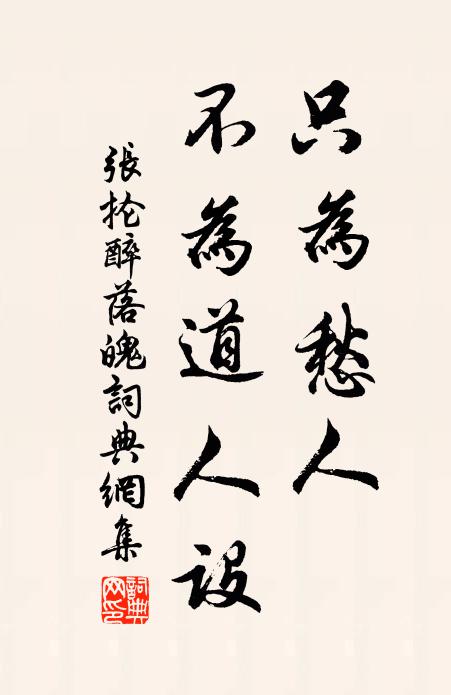 只為愁人
不為道人設
張抡醉落魄詞典網集
詞典網印